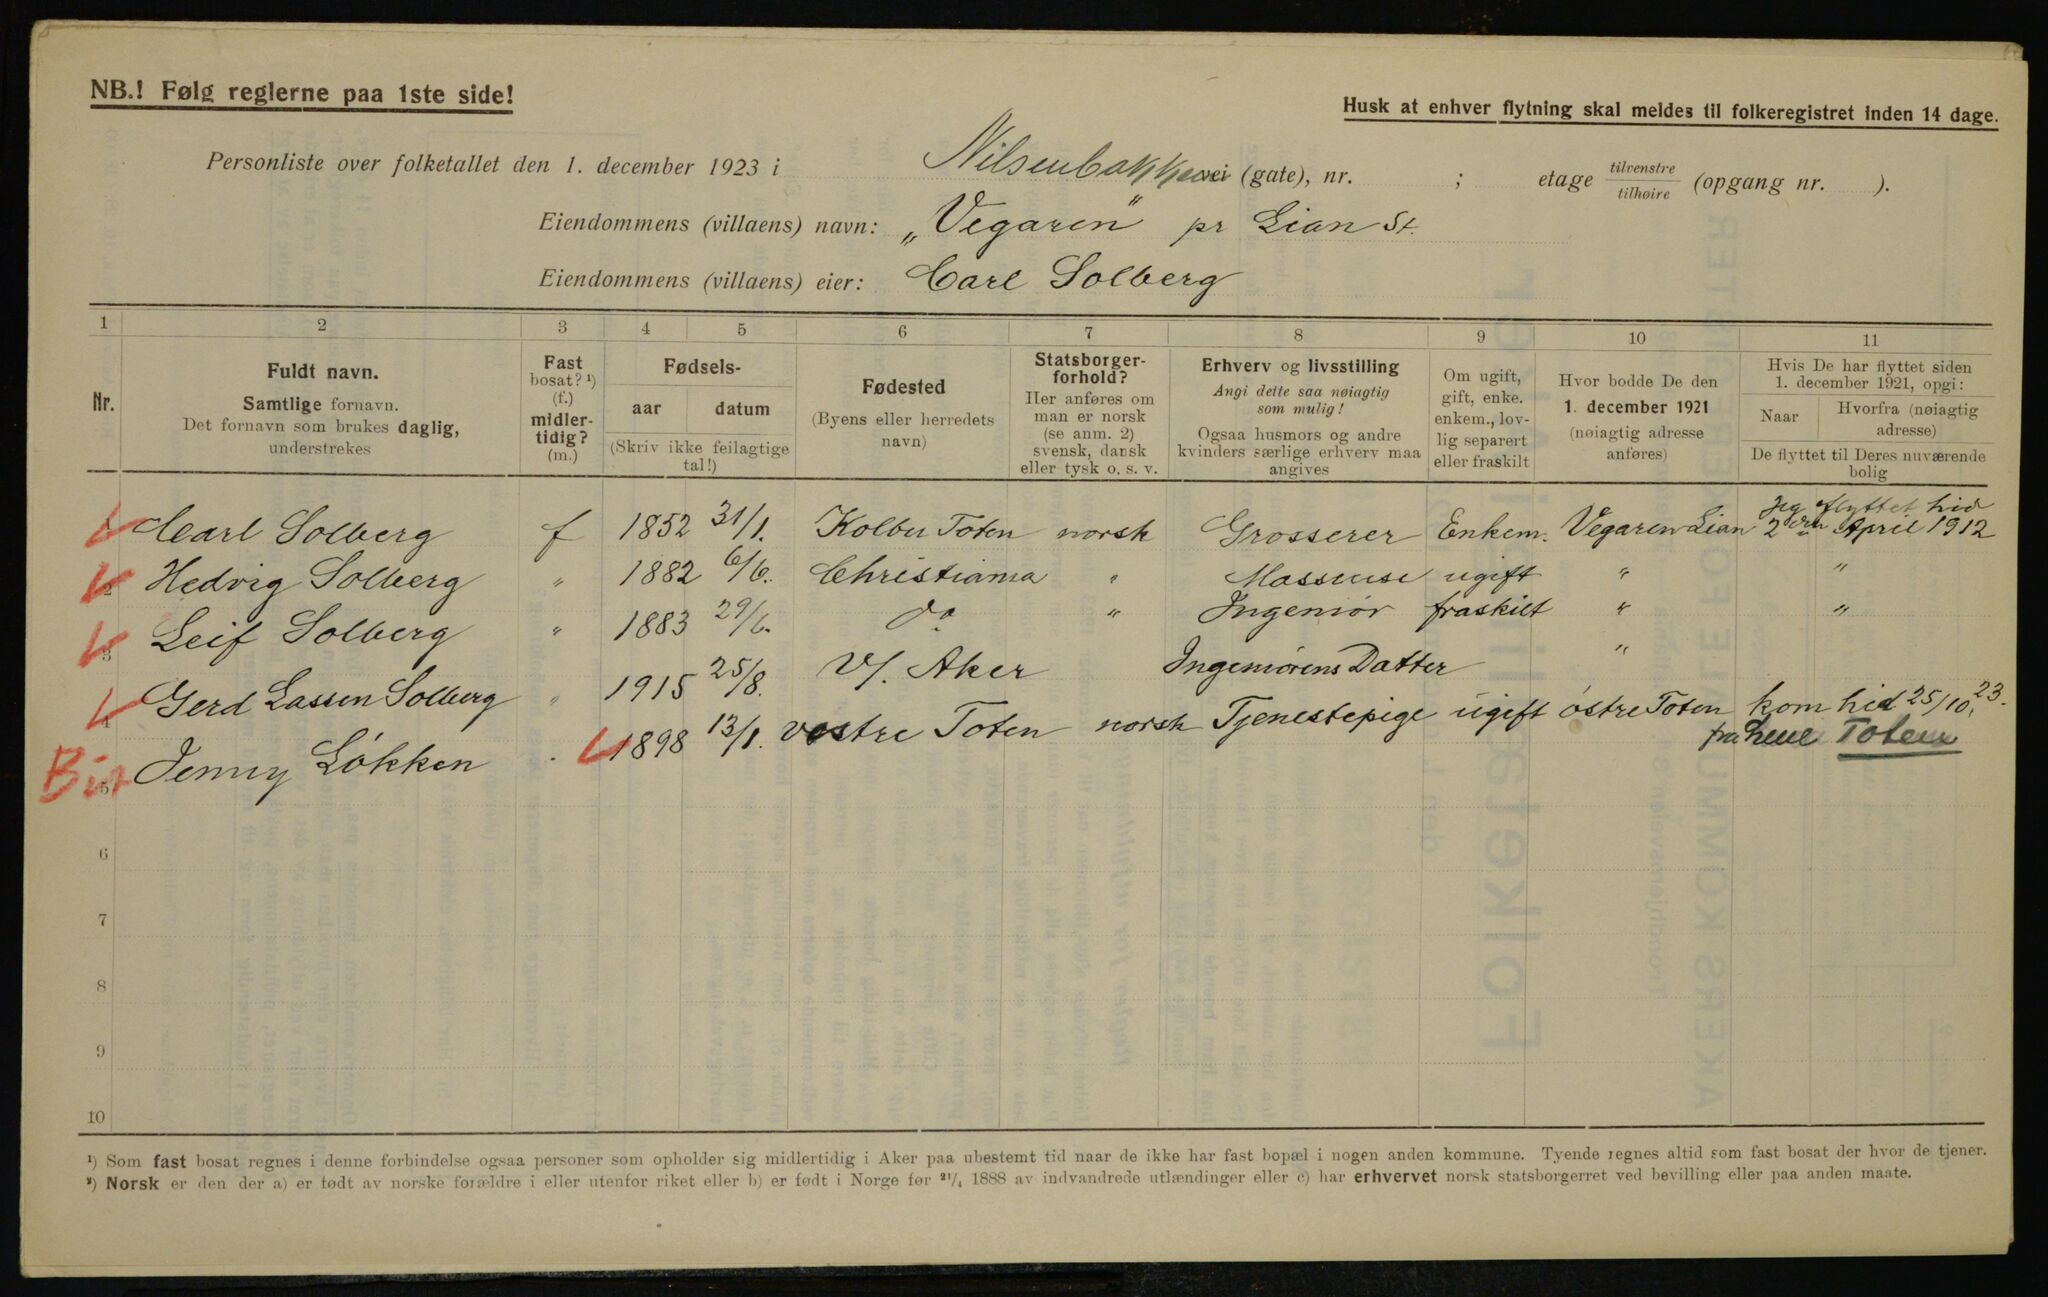 NB.! Følg reglerne paa 1ste side!
Husk at enhver flytning skal meldes til folkeregistret inden 14 dage.
Personliste over folketallet den 1. december 1923 i Nilsenbakken vei (gate), nr. ; etage tilvenstre tilhøire (opgang nr. ).
Eiendommens (villaens) navn: „Vegaren" pr Lian St.
Eiendommens (villaens) eier: Carl Solberg
1 2 3 4 5 6 7 8 9 10 11
Nr.
Fuldt navn.
Samtlige fornavn.
Det fornavn som brukes daglig,
understrekes
Fast
bosat? ¹)
(f.)
midler-
tidig?
(m.)
Fødsels-
aar datum
(Skriv ikke feilagtige
tal!)
Fødested
(Byens eller herredets
navn)
Statsborger-
forhold?
Her anføres om
man er norsk
(se anm. 2)
svensk, dansk
eller tysk o. s. v.
Erhverv og livsstilling
Angi dette saa nøiagtig
som mulig!
Ogsaa husmors og andre
kvinders særlige erhverv maa
angives
Om ugift,
gift, enke.
enkem., lov-
lig separert
eller fraskilt
Hvor bodde De den
1. december 1921
(nøiagtig adresse
anføres)
Hvis De har flyttet siden
1. december 1921, opgi:
Naar Hvorfra (nøiagtig
adresse)
De flyttet til Deres nuværende
bolig
Jeg flyttet hid
Carl Solberg f 1852 31/1. Kolbu Toten norsk Grosserer Enkem. Vegaren Lian 2den April 1912
2 Hedvig Solberg " 1882 6/6. Christiania " Masseuse ugift " "
3 Leif Solberg " 1883 29/6. do " Ingeniør fraskilt " "
4 Gerd Lassen Solberg " 1915 25/8. V/. Aker Ingeniørens Datter "
5 Jenny Løkken " 1898 13/1. vestre Toten norsk Tjenestepige ugift østre Toten kom hid 25/10. 23.
fra Toten
6
7
8
9
10
¹) Som fast bosat regnes i denne forbindelse ogsaa personer som opholder sig midlertidig i Aker paa ubestemt tid naar de ikke har fast bopæl i nogen anden kommune. Tyende regnes altid som fast bosat der hvor de tjener.
²) Norsk er den der a) er født av norske forældre i eller utenfor riket eller b) er født i Norge før 21/4 1888 av indvandrede utlændinger eller c) har erhvervet norsk statsborgerret ved bevilling eller paa anden maate.